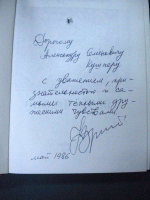 Дорогому
Александру Семёновичу
Кушнеру
с уважением, при-
знательностью и са-
мыми теплыми дру-
жескими чувствами
май 1986